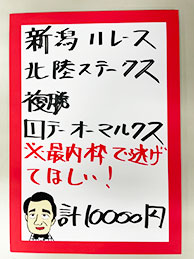 新潟11レース
北陸ステークス
複勝
①テーオーマルクス
※最内枠で逃げ
てほしい！
計10000円